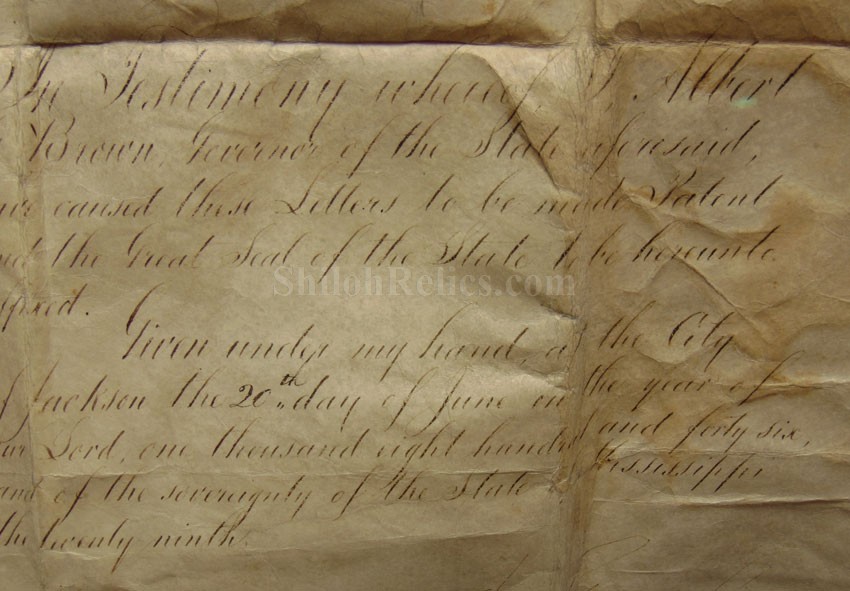 In Testimony whereof, I, Albert
Brown, Governor of the State aforesaid,
caused these Letters to be made Patent
the Great Seal of the State to be hereunto
ffixed.
ShilohRelics.com
Given under my hand, at the City
of Jackson the 20th day of June in the year of
our Lord, one thousand eight hundred and forty six,
and of the sovereignty of the State of Mississippi
the twenty ninth.